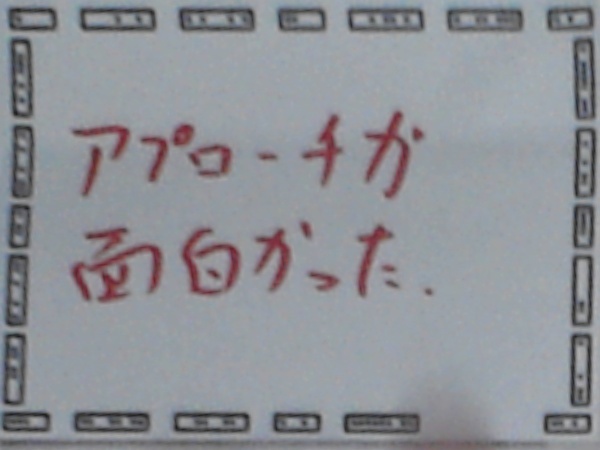 アプローチが
面白かった.